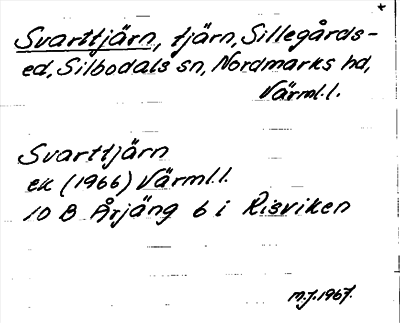 Svarttjärn, tjärn, Sillegårds-
ed, Silbodals sn, Nordmarks hd,
Värml.l.
Svarttjärn
ek (1966) Värml.l.
10 B Årjäng 6 i Risviken
M.J. 1967.